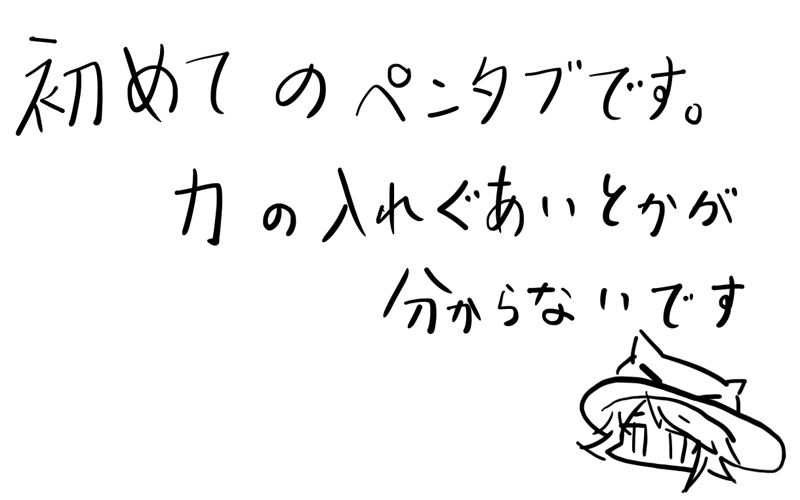 初めてのペンタブです。
力の入れぐあいとかが
分からないです